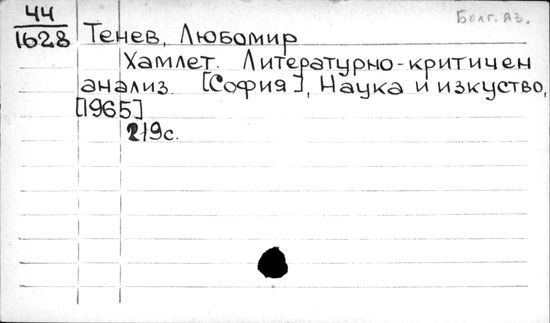 44
1628
Болг. яз.
Тенев, Любомир
Хамлет. Литературно-критичен
анализ. [София], Наука и изкуство,
[1965]
219с.